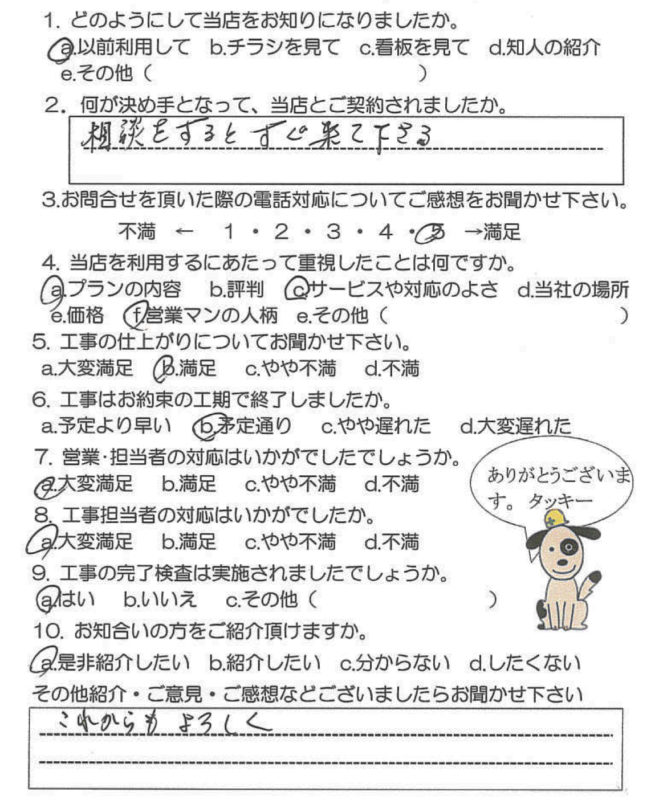 1. どのようにして当店をお知りになりましたか。
a.以前利用して b.チラシを見て c.看板を見て d.知人の紹介
e.その他（ ）
2. 何が決め手となって、当店とご契約されましたか。
相談をするとすぐ来て下さる
3.お問合せを頂いた際の電話対応についてご感想をお聞かせ下さい。
不満 ← 1・2・3・4・5 →満足
4. 当店を利用するにあたって重視したことは何ですか。
a.プランの内容 b.評判 c.サービスや対応のよさ d.当社の場所
e.価格 f.営業マンの人柄 e.その他（ ）
5. 工事の仕上がりについてお聞かせ下さい。
a.大変満足 b.満足 c.やや不満 d.不満
6. 工事はお約束の工期で終了しましたか。
a.予定より早い b.予定通り c.やや遅れた d.大変遅れた
7. 営業・担当者の対応はいかがでしたでしょうか。
a.大変満足 b.満足 c.やや不満 d.不満
ありがとうございま
す。 タッキー
8. 工事担当者の対応はいかがでしたか。
a.大変満足 b.満足 c.やや不満 d.不満
9. 工事の完了検査は実施されましたでしょうか。
a.はい b.いいえ c.その他（ ）
10. お知合いの方をご紹介頂けますか。
a.是非紹介したい b.紹介したい c.分からない d.したくない
その他紹介・ご意見・ご感想などございましたらお聞かせ下さい
これからもよろしく